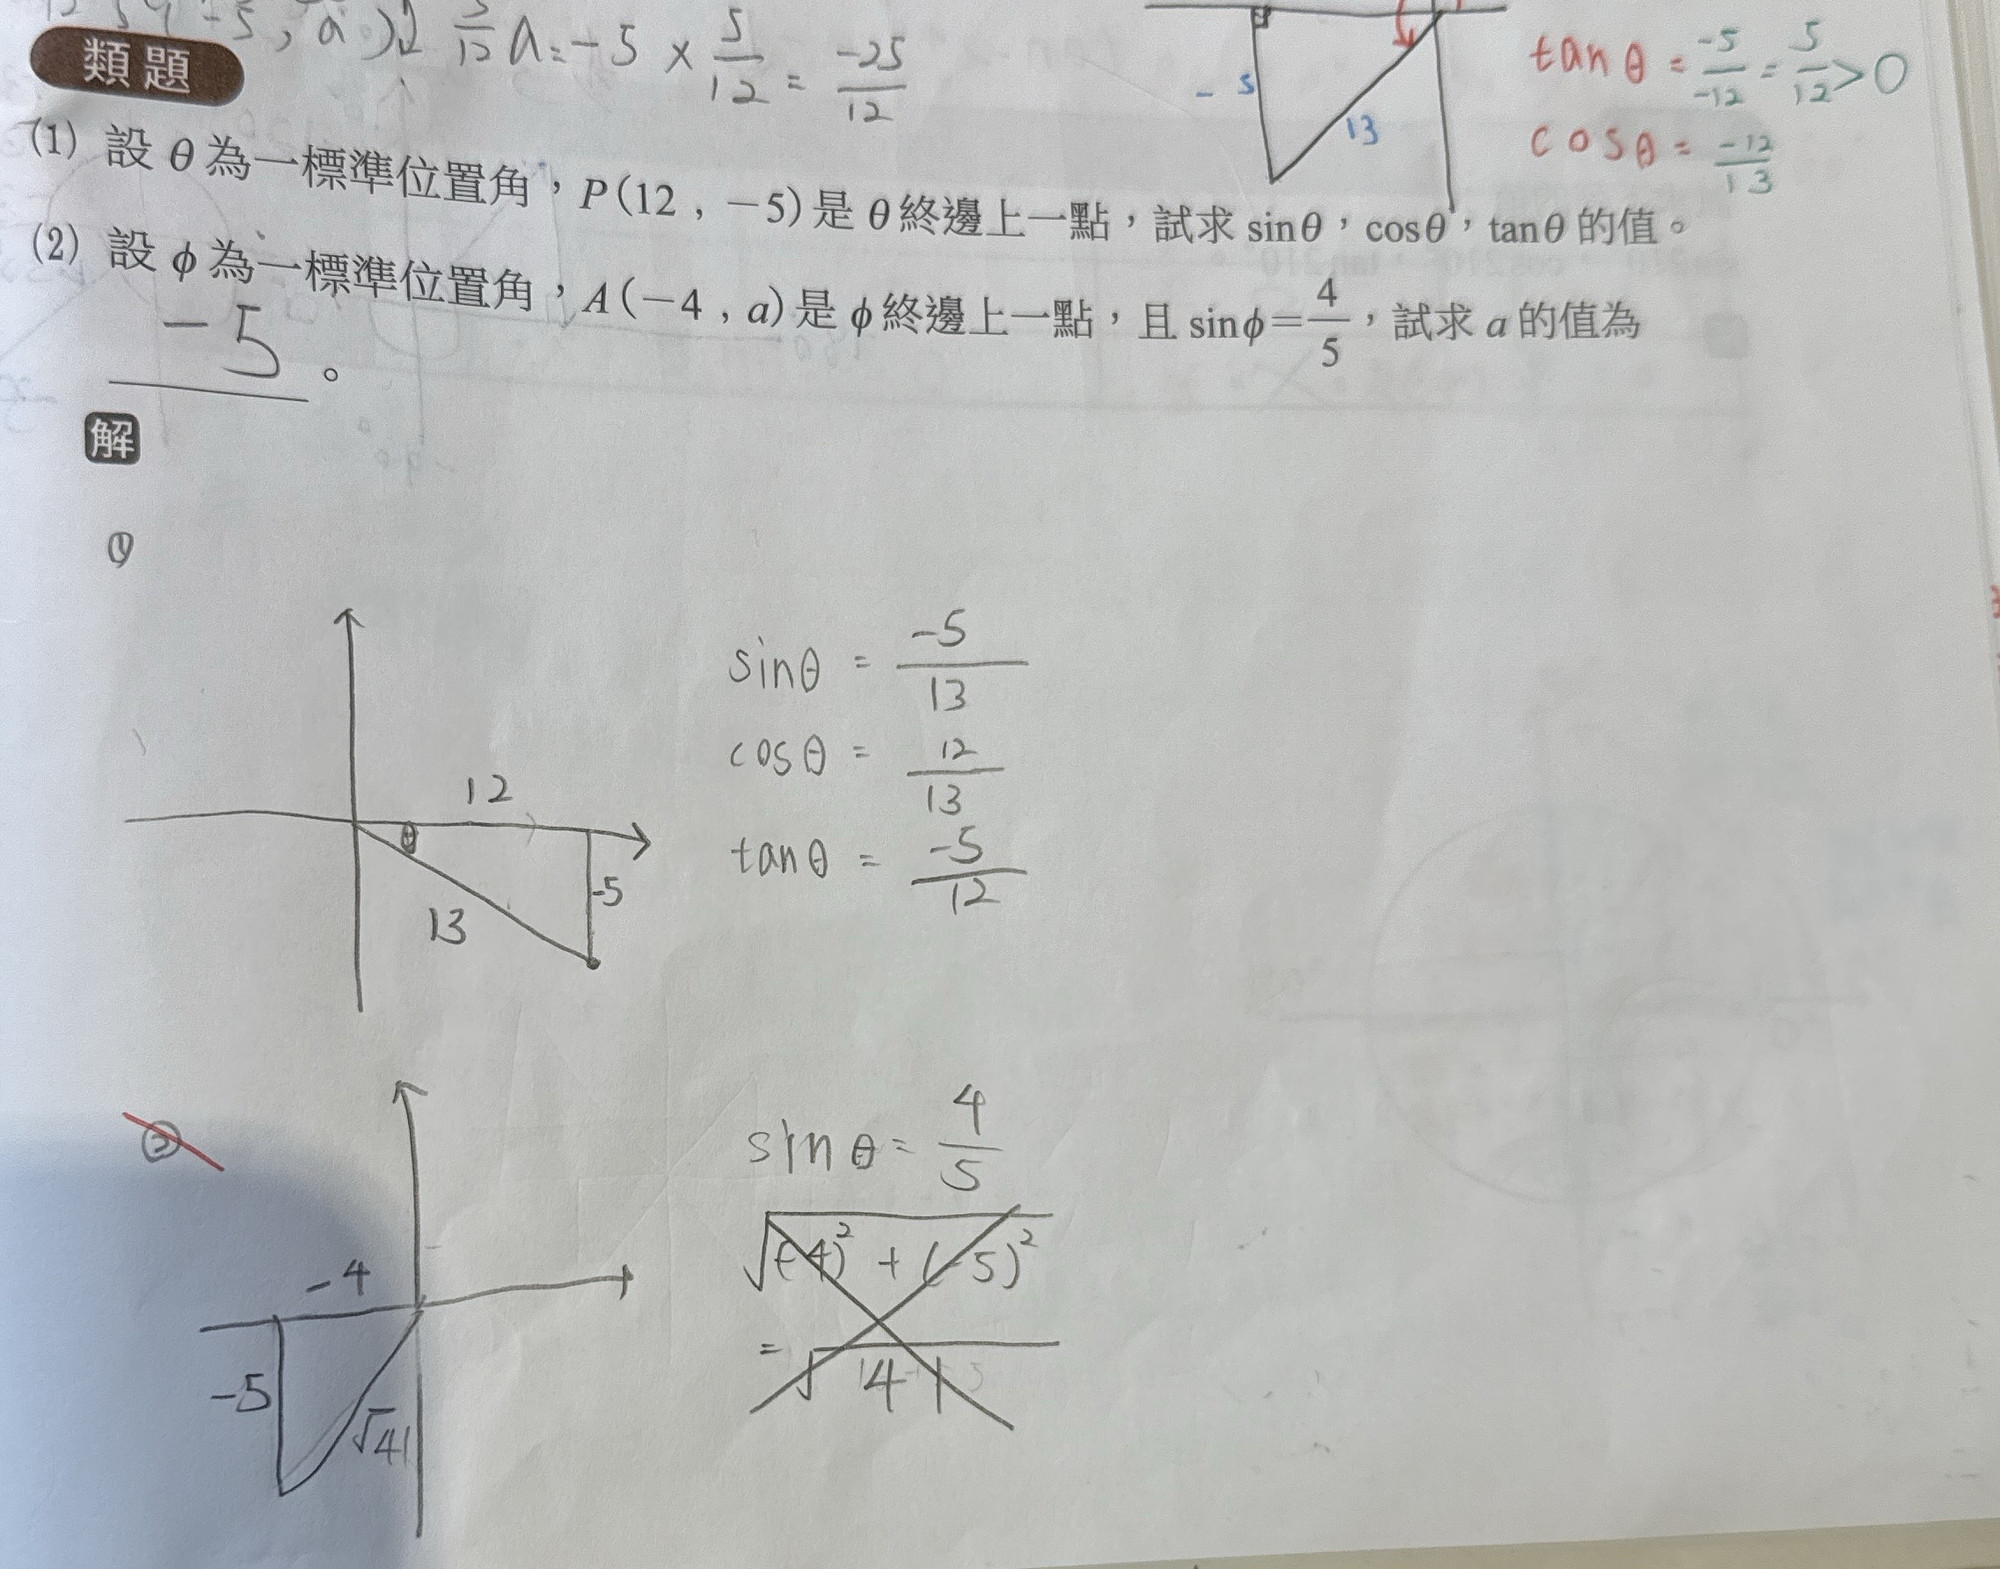 -5, a
5/12 a = -5 × 5/12 = -25/12
- 5
13
tanθ = -5/-12 = 5/12 > 0
cosθ = -12/13
類題
(1) 設 θ 為一標準位置角，P(12 , −5)是 θ 終邊上一點，試求 sinθ，cosθ，tanθ 的值。
(2) 設 ϕ 為一標準位置角，A(−4 , a)是 ϕ 終邊上一點，且 sinϕ=4/5，試求 a 的值為
-5 。
解
(1)
12
θ
-5
13
sinθ = -5/13
cosθ = 12/13
tanθ = -5/12
②
-4
-5
√41
sinθ = 4/5
√(-4)² + (-5)²
= √41